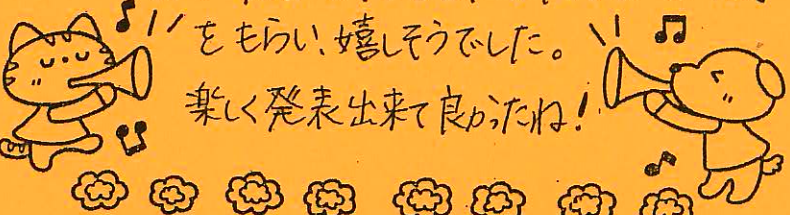 をもらい、嬉しそうでした。
楽しく発表出来て良かったね!